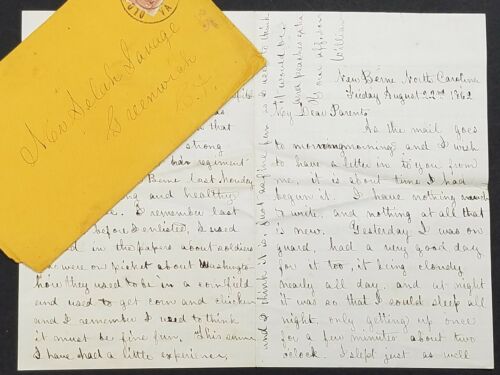 Mrs Selah Savage
Greenwich
CT.
New Berne North Carolina
Friday August 22nd 1862
My Dear Parents
As the mail goes
to morrow morning and I wish
to have a letter in to you from
me, it is about time I had
begun it. I have nothing much
I write, and nothing at all that
is new. Yesterday I was on
guard, had a very good day
for it too, it being cloudy
nearly all day, and at night
it was so that I could sleep all
night, only getting up once
for a few minutes about two
oclock. I slept just as well
that
strong
regiment
Berne last Monday
and healthy
I remember last
before I enlisted, I used
in the papers about soldiers
were on picket about Washington
how they used to be in a cornfield
and used to get corn and chickens
and I remember I used to think
it must be fine fun. This same
I have had a little experience,
and I think it is just as fine fun as I used to think
it would be.
William